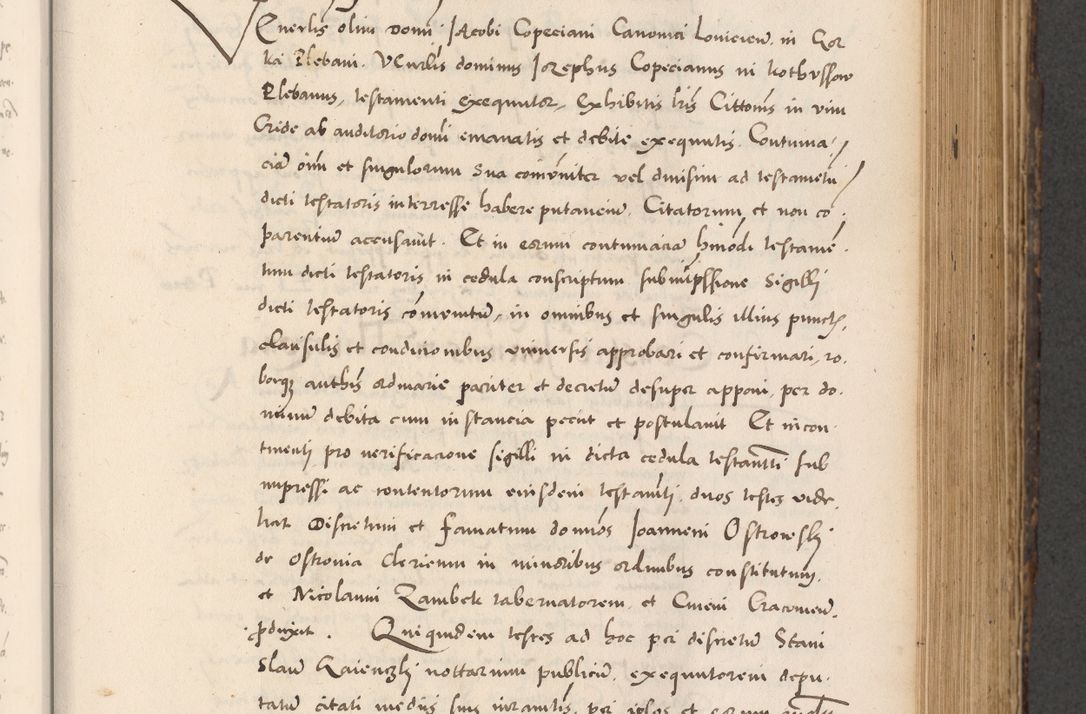 Venerlis olim domi Jacobi Copeciani Canonici Lovicien. in Gor
ki Plebani. Vnerlis dominus Jozephus Copecianus in Kothussow
Plebanus, testamenti exequutor, exhibitis lris Cittonis in vim
Crede ab auditorio domi emanatis et debite exequutis. Contuma
ciã oim et singulorum sua comuniter vel divisim ad testametu
dicti testatoris interresse habere putaneiu. Citatorum et non co
parentiu accusavit. Et in eorum contumacia hmodi testame
tum dicti testatoris in cedula conscriptum sub impssione sigilli
dicti testatoris comunitu, in omnibus et singulis illius punct,
clausulis et condicionibus universis approbari et confirmari, ro
borq authis ordinarie pariter et decretu desuper apponi per do
minu debita cum instancia peciit et postulavit. Et incon
tinenti pro verificacione sigilli in dicta cedula testamti sub
impressi ac contentorum eiusdem testamti, duos testes vide
licet Discretum et famatum dominos Joannem Ostrowsky
de Ostronia Clericum in minoribus ordinibus constitutum,
et Nicolaum Zambek tabernatorem, et Civem Cracovien,
pduxit. Qui quidem testes ad hoc per discretu Stani
slau Gaienczky nottarium publicu, exequutorem depu
tatu citati medijs suis iuramtis, per ipsos et eorum